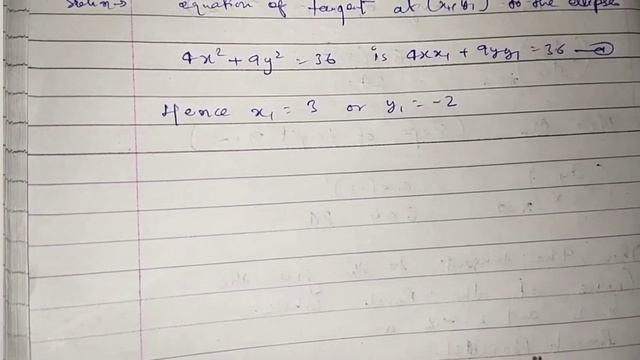 equation of tangent at (x₁, y₁) to the ellipse
4x² + 9y² = 36 is 4xx₁ + 9yy₁ = 36
Hence x₁ = 3 or y₁ = -2